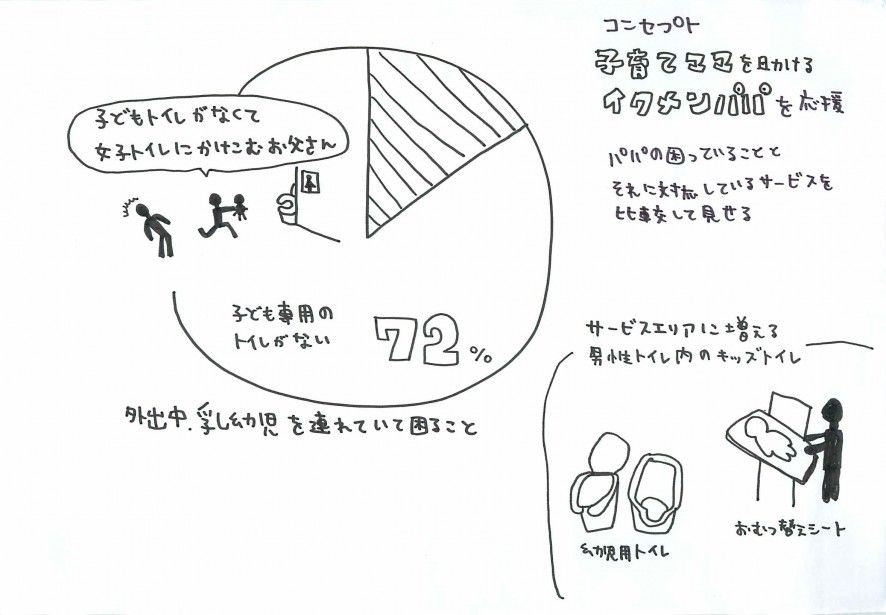 コンセプト
子育てママを助ける
イクメンパパを応援
パパの困っていることと
それに対応しているサービスを
比較して見せる
子どもトイレがなくて
女子トイレにかけこむお父さん
子ども専用の
トイレがない
72%
外出中、乳幼児を連れていて困ること
サービスエリアに増える
男性トイレ内のキッズトイレ
幼児用トイレ
おむつ替えシート